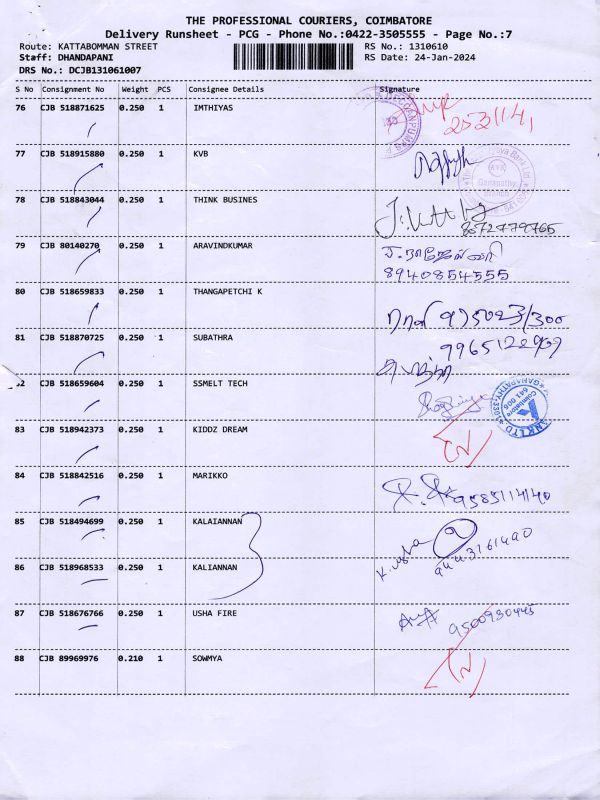 THE PROFESSIONAL COURIERS, COIMBATORE
Delivery Runsheet - PCG - Phone No.:0422-3505555 - Page No.:7
Route: KATTABOMMAN STREET RS No.: 1310610
Staff: DHANDAPANI RS Date: 24-Jan-2024
DRS No.: DCJB131061007
S No Consignment No Weight PCS Consignee Details Signature
76 CJB 518871625 0.250 1 IMTHIYAS
77 CJB 518915880 0.250 1 KVB
78 CJB 518843044 0.250 1 THINK BUSINES
79 CJB 80140270 0.250 1 ARAVINDKUMAR
8940854555
80 CJB 518659833 0.250 1 THANGAPETCHI K
81 CJB 518870725 0.250 1 SUBATHRA
CJB 518659604 0.250 1 SSMELT TECH
83 CJB 518942373 0.250 1 KIDDZ DREAM
84 CJB 518842516 0.250 1 MARIKKO
9585114140
85 CJB 518494699 0.250 1 KALAIANNAN
86 CJB 518968533 0.250 1 KALIANNAN
9443161490
87 CJB 518676766 0.250 1 USHA FIRE
9500930445
88 CJB 89969976 0.210 1 SOWMYA